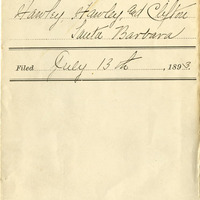 Hawley, Hawley, and Clifton
Santa Barbara
Filed July 13th, 1893.